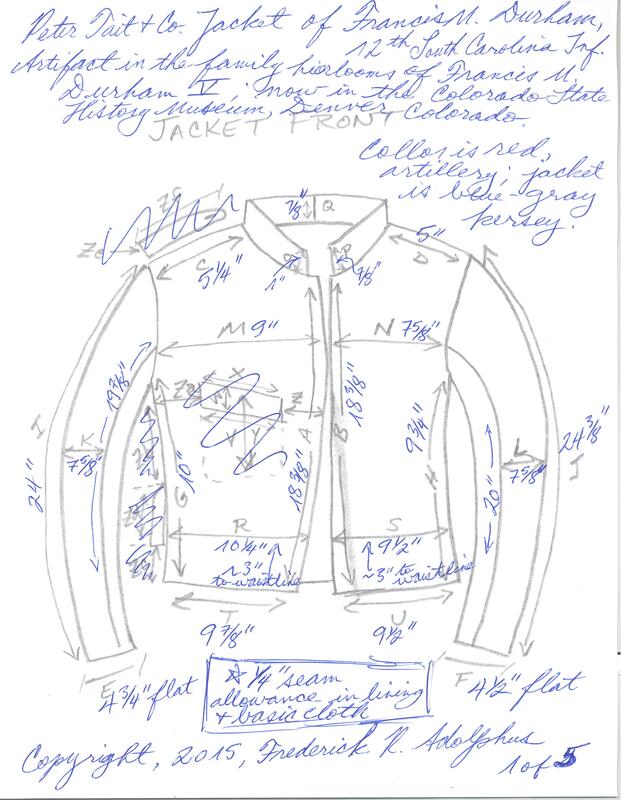 Peter Tait & Co. Jacket of Francis M. Durham,
12th South Carolina Inf.
Artifact in the family heirlooms of Francis M.
Durham V; now in the Colorado State
History Museum, Denver, Colorado.
JACKET FRONT
Collor is red,
artillery; jacket
is blue-gray
kersey.
7/8" Q
C
5 1/4"
5"
D
1"
7/8"
M 9"
N 7 5/8"
19 7/8"
X
Z
A
B
18 3/8"
18 3/8"
9 3/4"
H
I
24"
K
7 5/8"
G 10"
Y
L
7 5/8"
24 3/8"
J
20"
R
10 1/4"
~3"
to waistline
S
9 1/2"
~3" to
waistline
T
9 7/8"
U
9 1/2"
E
4 3/4" flat
F 4 1/2" flat
☆ 1/4" seam
allowance in lining
& basic cloth
Copyright, 2015, Frederick R. Adolphus
1 of 5